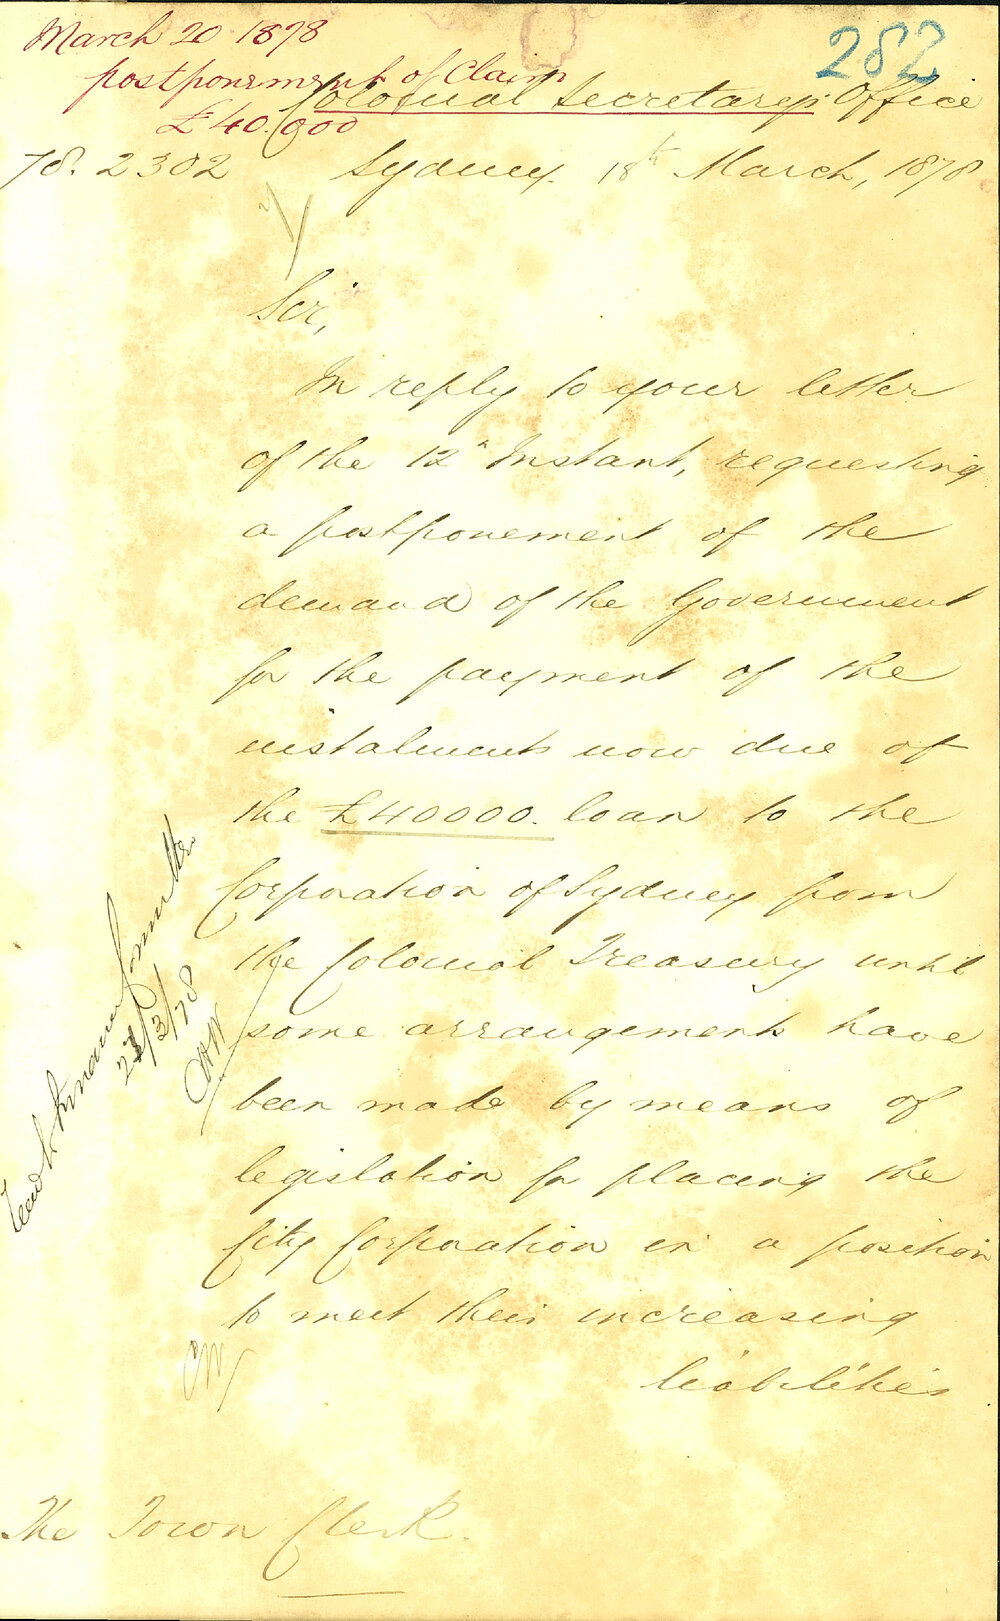 March 20 1878
postponement of Claim
£40.000
282
Colonial Secretarys Office
78. 2302
Sydney. 18th March, 1878
Sir,
In reply to your letter
of the 12" Instant, requesting
a postponement of the
demand of the Government
for the payment of the
instalments now due of
the £40000. loan to the
Corporation of Sydney from
the Colonial Treasury until
some arrangements have
been made by means of
legislation for placing the
City Corporation in a position
to meet their increasing
liabilities
Finance Committee
21/3/78
The Town Clerk.